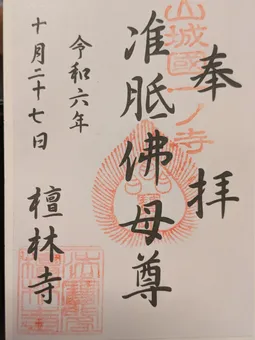 奉拝
山城國一ノ寺
准胝佛母尊
令和六年
十月二十七日
檀林寺